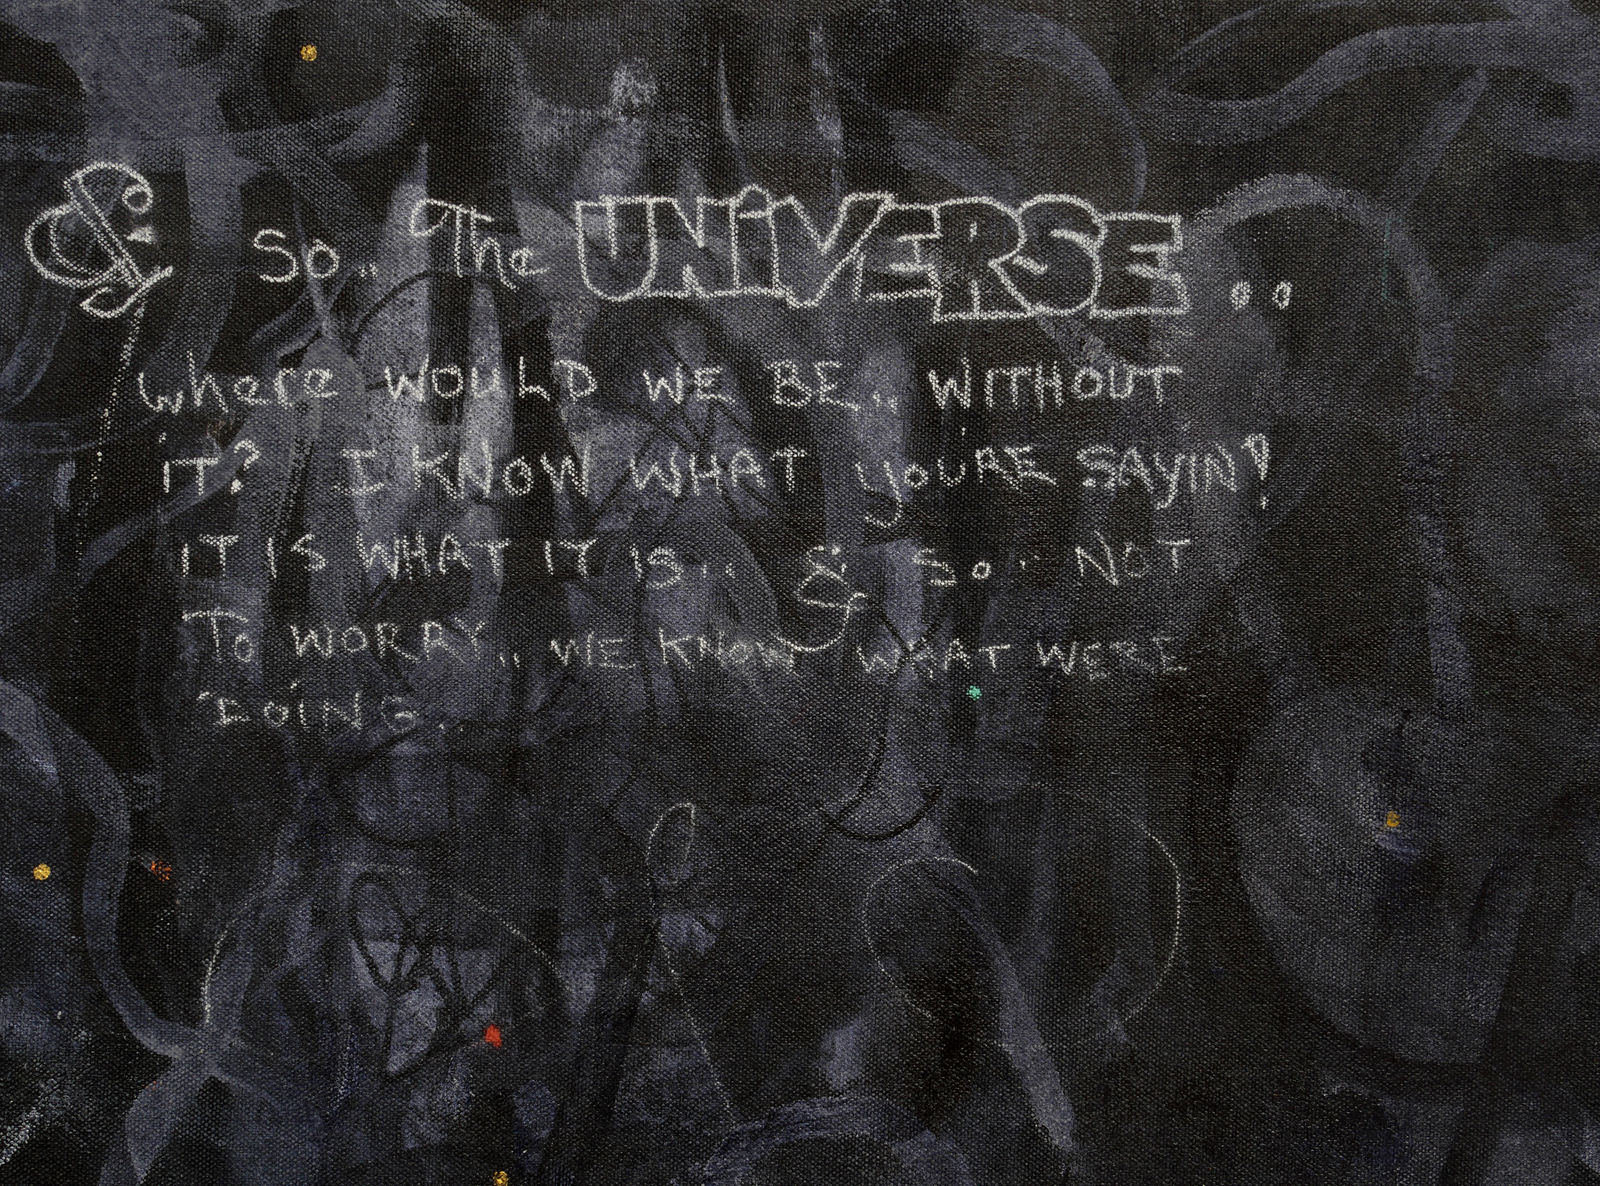 & so.. The UNiVERSE ..
where WOULD WE BE.. WITHOUT
iT? I KNOW WHAT youRE SAYIN!
IT IS WHAT IT IS.. & so.. NOT
To WORRY.. WE KNOW WHAT WERE
DOiNG..